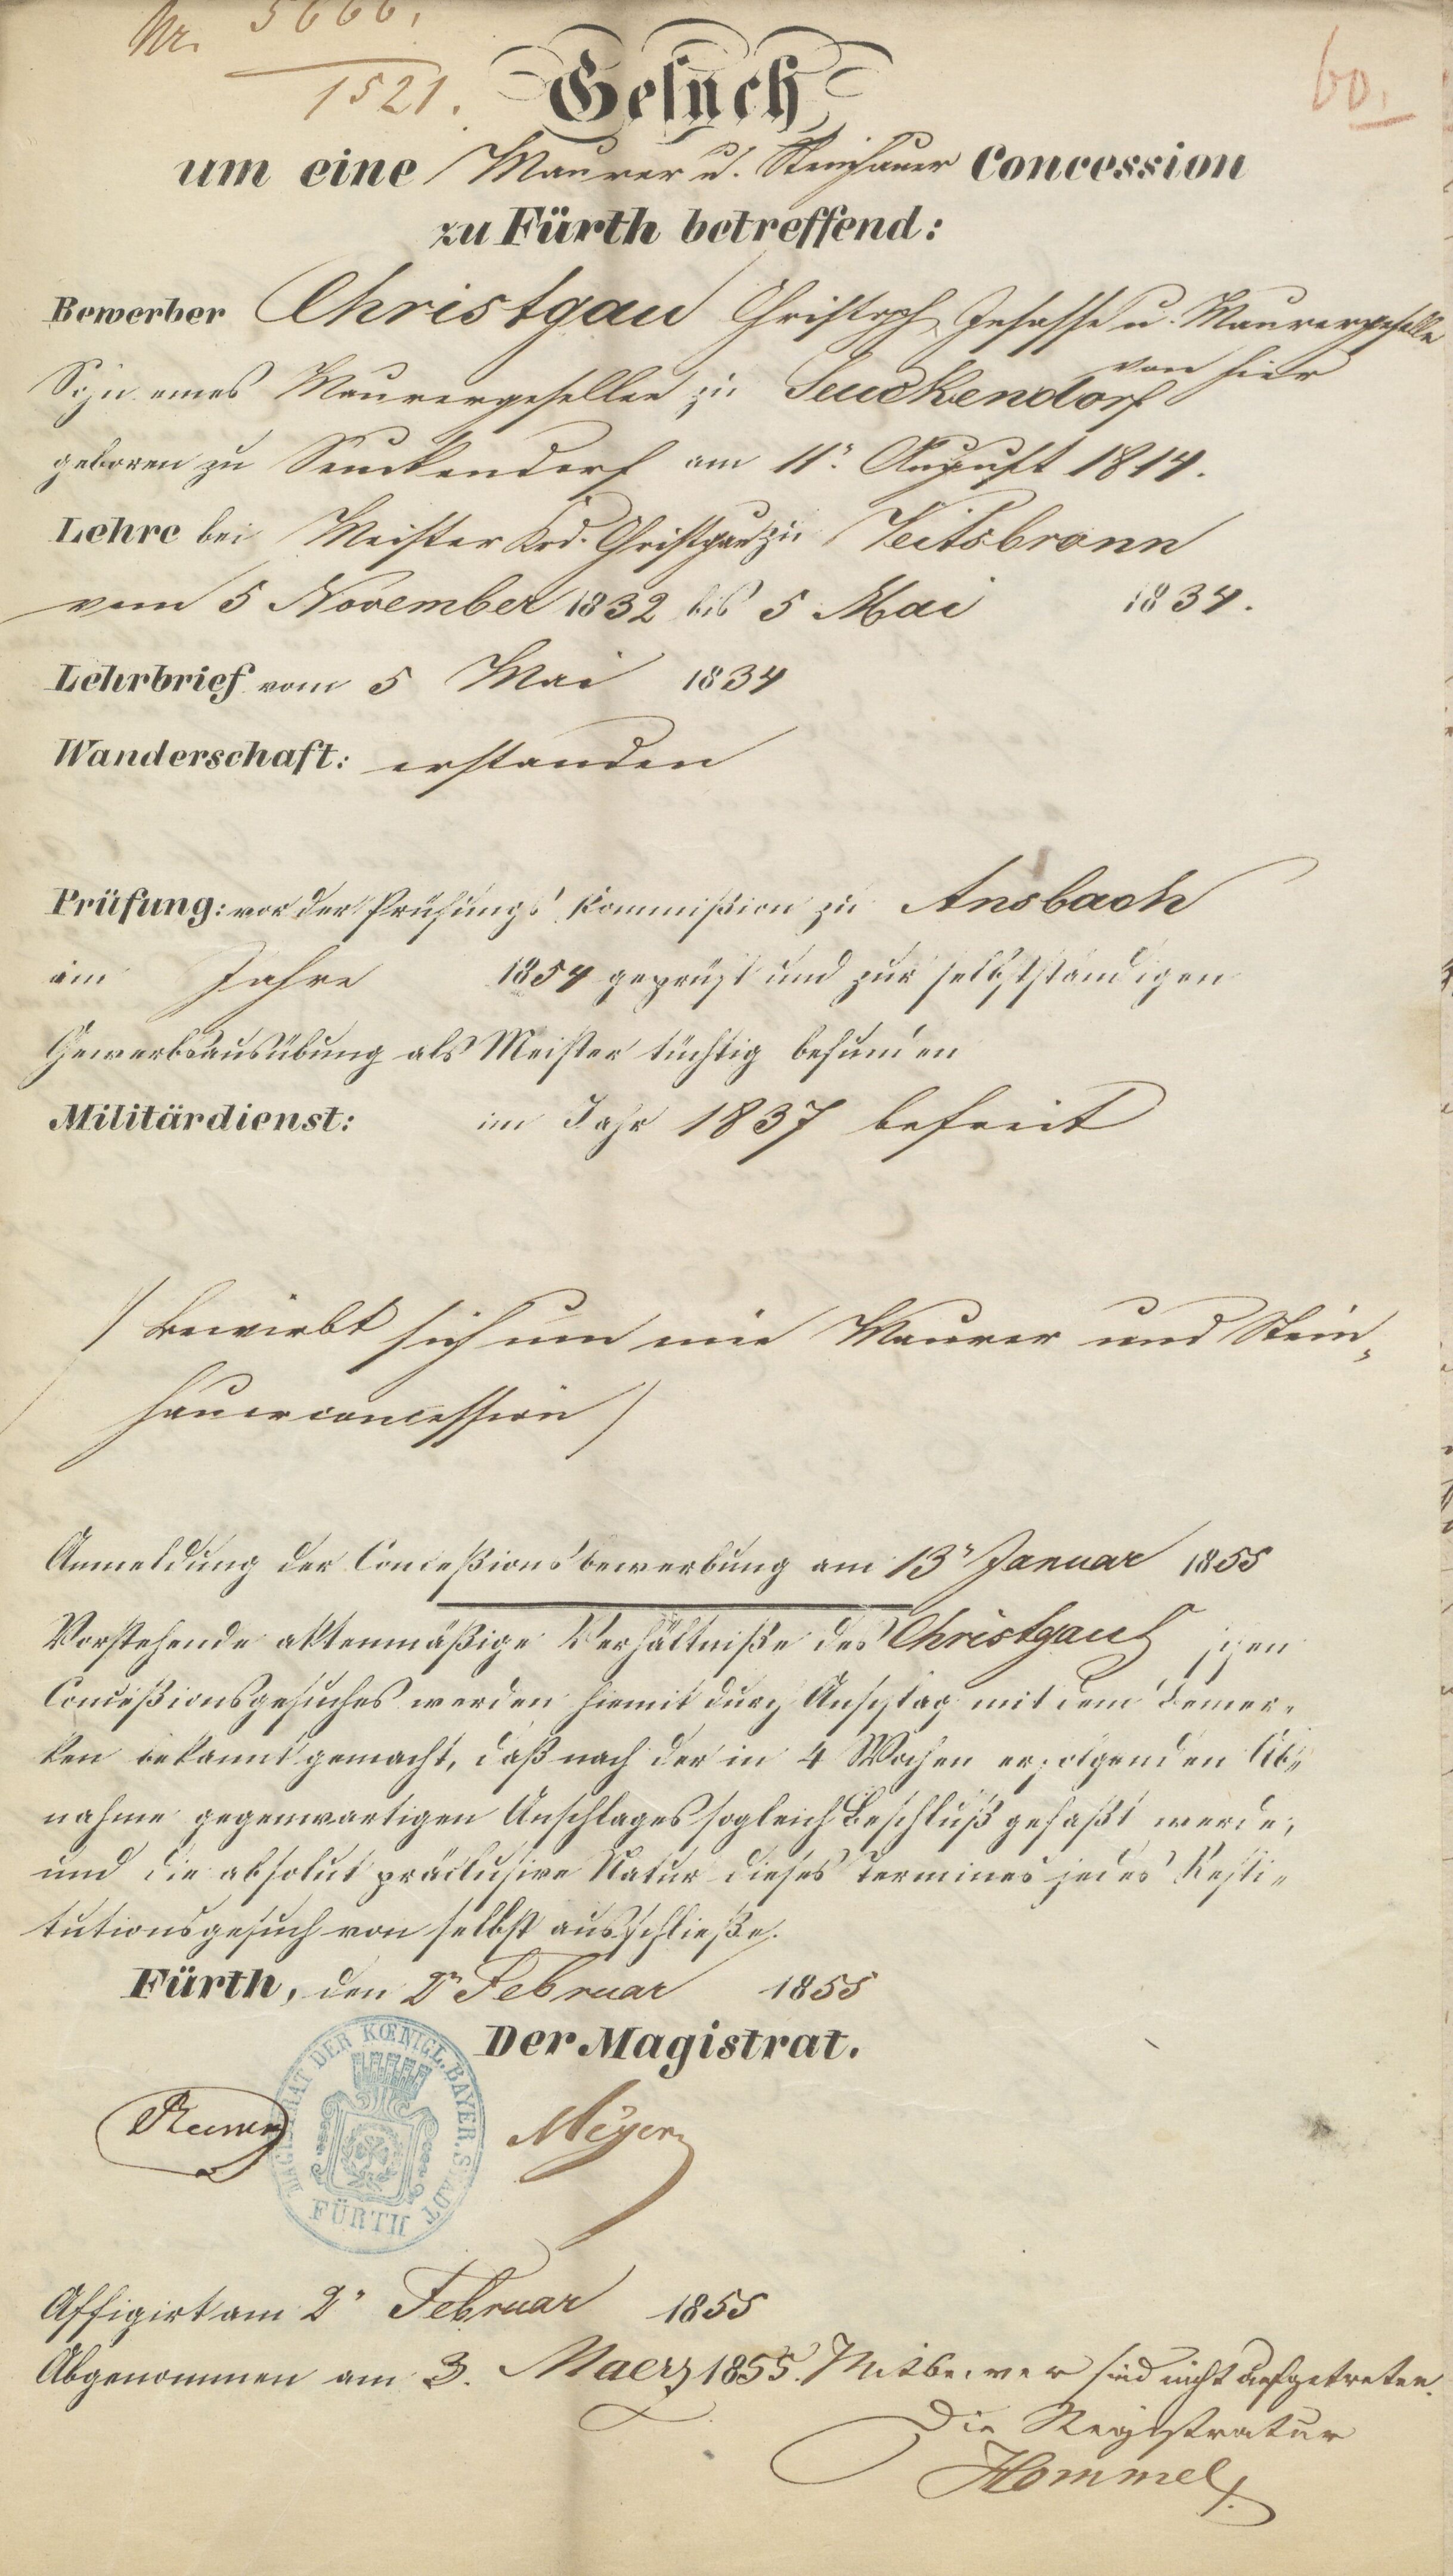 Nr. 5666.
1521.
60.
Gesuch
um eine Maurer u. Steinhauer Concession
zu Fürth betreffend:
Bewerber Christgau Christoph Insasse u. Maurergeselle
von hier
Sohn eines Maurergesellen zu Seuckendorf
geboren zu Seuckendorf am 11. August 1814.
Lehre bei Meister Christgau zu Veitsbronn
vom 5 November 1832 bis 5 Mai 1834.
Lehrbrief vom 5 Mai 1834
Wanderschaft: erstanden
Prüfung: vor der Prüfungs Kommißion zu Ansbach
im Jahre 1854 geprüft und zur selbstständigen
Gewerbsausübung als Meister tüchtig befunden
Militärdienst: im Jahr 1837 befreit
/ Bewirbt sich um eine Maurer und Stein-
hauerconcession /
Anmeldung der Conceßionsbewerbung am 13 Januar 1855
Vorstehende aktenmäßige Verhältniße des Christgau'schen
Conceßionsgesuches werden hiemit durch Anschlag mit dem Bemer-
ken bekannt gemacht, daß nach der in 4 Wochen erfolgenden Ab-
nahme gegenwartigen Anschlages sogleich Beschluß gefaßt werde,
und die absolut präclusive Natur dieses Termines jedes Resti-
tutionsgesuch von selbst ausschließe.
Fürth, den 2 Februar 1855
Der Magistrat.
MAGISTRAT DER KŒNIGL. BAYER. STADT
FÜRTH
Meyer
Affigirt am 2 Februar 1855
Abgenommen am 3. Maerz 1855. Mitbewerber sind nicht aufgetreten.
Die Registratur
Hommel